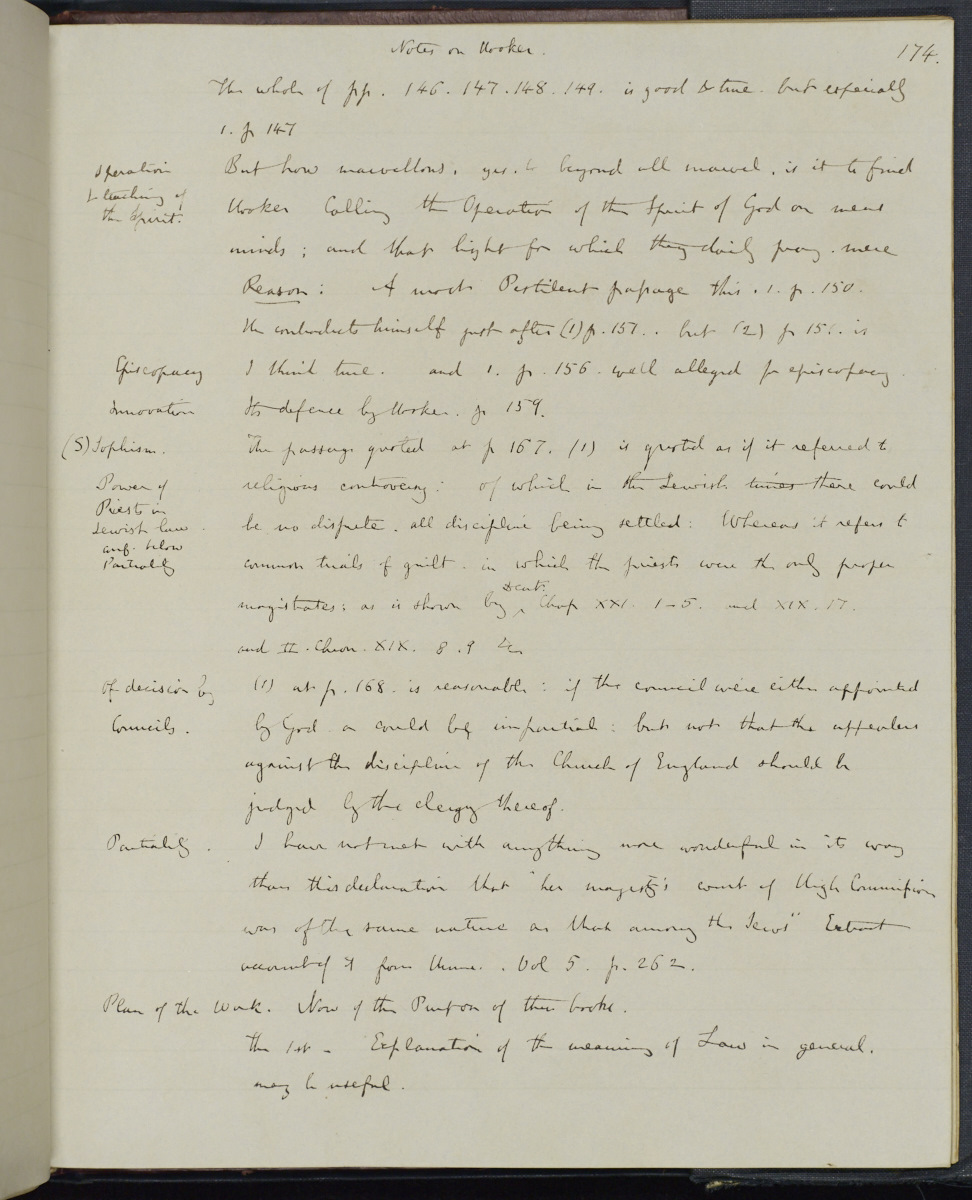 Notes on Hooker.
174.
The whole of pp. 146. 147. 148. 149. is good & true. but especially
1. p 147
Operation
& teaching of
the Spirit.
But how marvellous, yes. beyond all marvel, is it to find
Hooker Calling the Operation of the Spirit of God on mens
minds; and that light for which they daily pray. mere
Reason: A most Pestilent passage this. 1. p. 150.
He contradicts himself just after (1) p. 151.. but (2) p 151. is
Episcopacy
I think true. and 1. p. 156. well alleged for episcopacy.
Innovation
Its defence by Hooker. p 159.
(S) Sophism.
The passage quoted at p 167. (1) is quoted as if it referred to
Power of
Priests in
Jewish law.
below
Partiality
religious controversy: of which in the Jewish times there could
be no dispute. all discipline being settled: Whereas it refers to
common trials of guilt. in which the priests were the only proper
magistrates: as is shown by Deut. Chap XXI. 1-5. and XIX. 17.
and II. Chron. XIX. 8. 9 &c
Of decision by
Councils.
(1) at p. 168. is reasonable: if the council were either appointed
by God or could be impartial: but not that the appealers
against the discipline of the Church of England should be
judged by the clergy thereof.
Partiality.
I have not met with anything more wonderful in its way
than this declaration that "her majesty's court of High Commission
was of the same nature as that among the Jews" Extract
account of it from Hume.. Vol 5. p. 262.
Plan of the Work. Now of the Purpose of these books.
The 1st - Explanation of the meaning of Law in general.
may be useful.